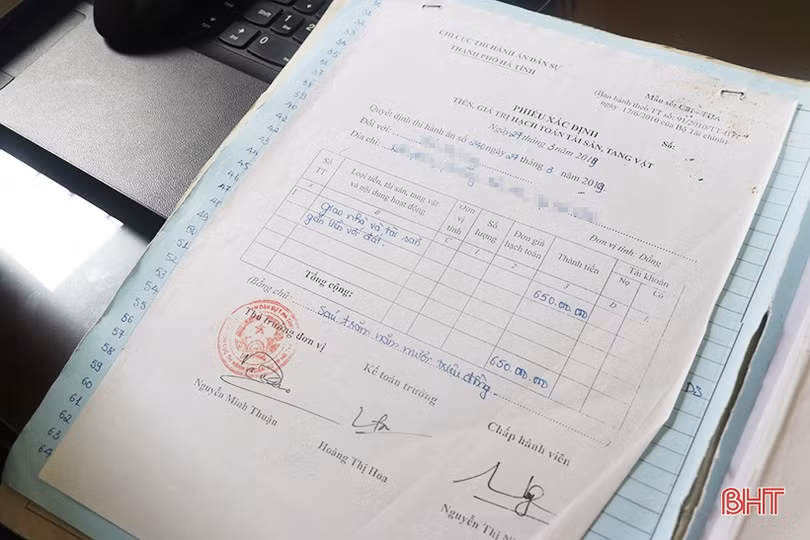 CHI CỤC THI HÀNH ÁN DÂN SỰ
THÀNH PHỐ HÀ TĨNH
Mẫu số:
(Ban hành theo TT số: 91/2010/TT-BTC
ngày 17/6/2010 của Bộ Tài chính)
PHIẾU XÁC ĐỊNH
TIỀN, GIÁ TRỊ HẠCH TOÁN TÀI SẢN, TANG VẬT
Ngày 29 tháng 3 năm 2019
Số:
Quyết định thi hành án số 240 ngày 29 tháng 3 năm 2019.
Đối với:
Địa chỉ:
Đơn vị tính: Đồng
Số TT
Loại tiền, tài sản, tang vật và nội dung hoạt động
Đơn vị tính
Số lượng
Đơn giá hạch toán
Thành tiền
Tài khoản
Nợ
Có
A B C 1 2 3 D E
1
giao nhà và tài sản
gắn liền với đất.
650.000.000
Tổng cộng:
650.000.000
(Bằng chữ: Sáu trăm năm mươi triệu đồng.
Thủ trưởng đơn vị
Kế toán trưởng
Chấp hành viên
Nguyễn Minh Thuận
Hoàng Thị Hoa
Nguyễn Thị
39
40
42
43
44
45
46
47
48
49
50
51
52
53
54
55
56
57
58
59
60
61
62
63
64
BHT